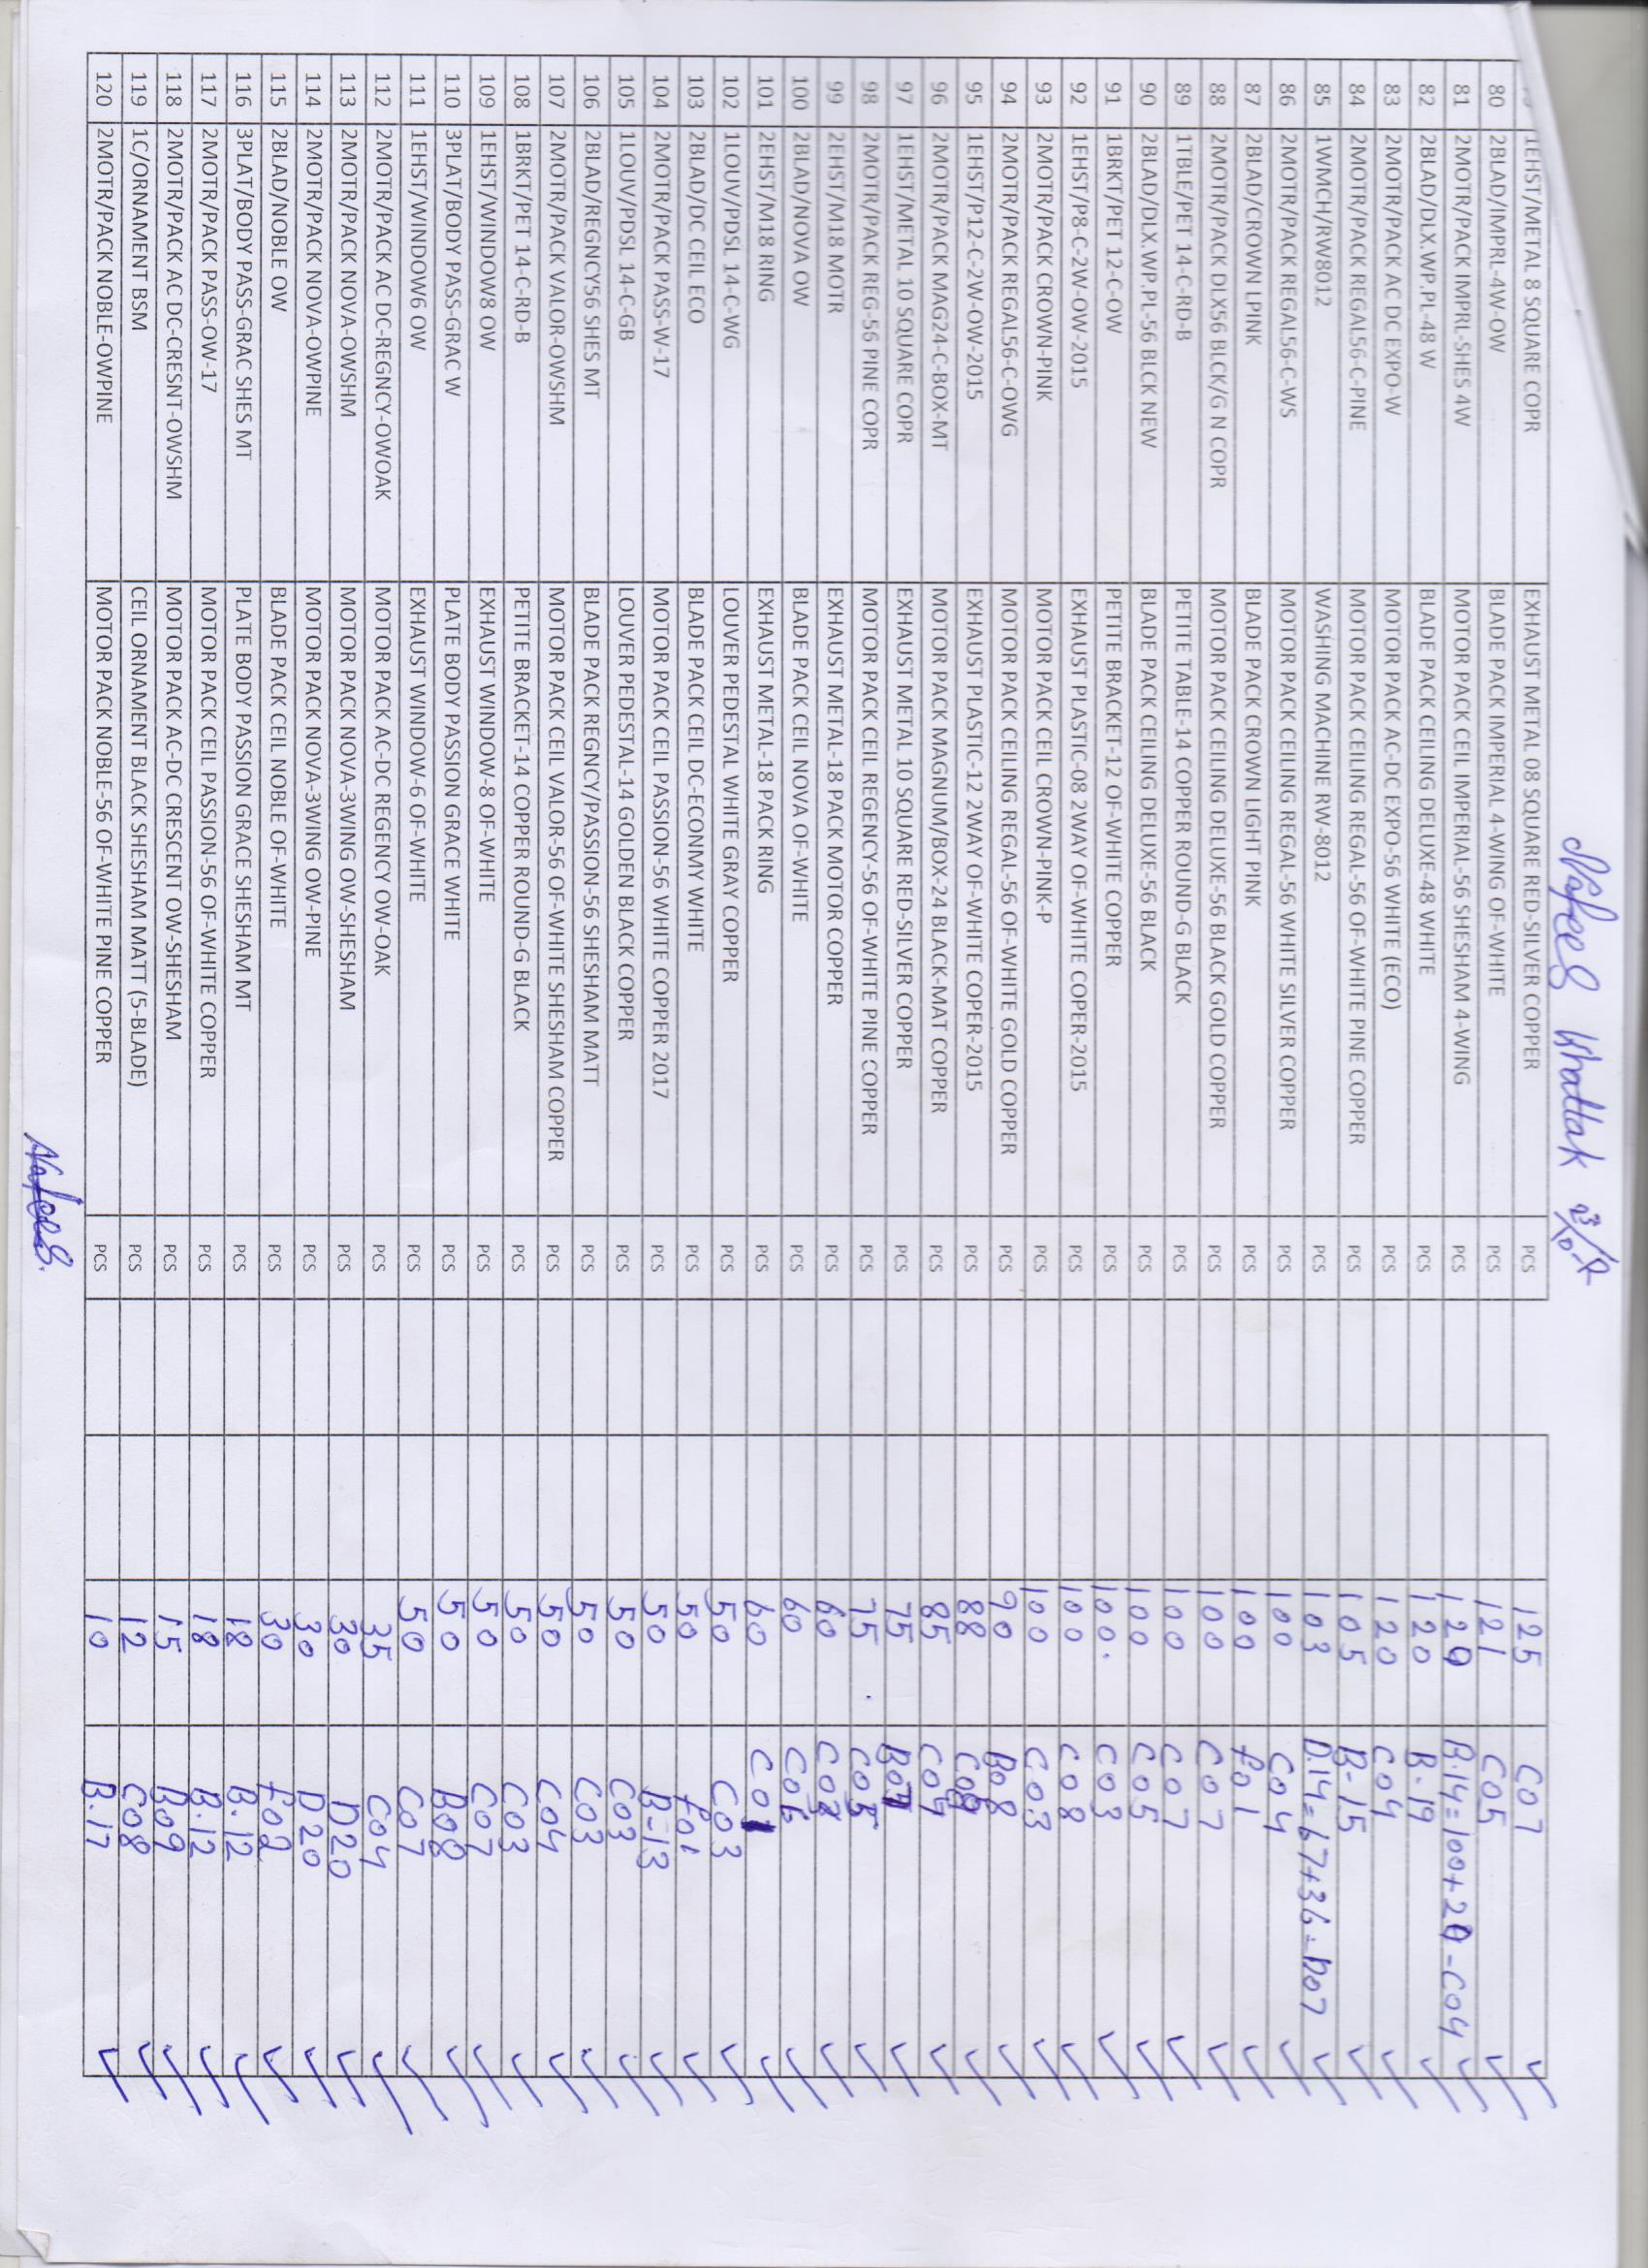 Nafees Khattak
1EHST/METAL 8 SQUARE COPR EXHAUST METAL 08 SQUARE RED-SILVER COPPER PCS 125 C07 ✓
80 2BLAD/IMPRL-4W-OW BLADE PACK IMPERIAL 4-WING OF-WHITE PCS 121 C05 ✓
81 2MOTR/PACK IMPRL-SHES 4W MOTOR PACK CEIL IMPERIAL-56 SHESHAM 4-WING PCS 120 B.14=100+20-C04 ✓
82 2BLAD/DLX.WP.PL-48 W BLADE PACK CEILING DELUXE-48 WHITE PCS 120 B-19 ✓
83 2MOTR/PACK AC DC EXPO-W MOTOR PACK AC-DC EXPO-56 WHITE (ECO) PCS 120 C04 ✓
84 2MOTR/PACK REGAL56-C-PINE MOTOR PACK CEILING REGAL-56 OF-WHITE PINE COPPER PCS 105 B-15 ✓
85 1WMCH/RW8012 WASHING MACHINE RW-8012 PCS 103 D.14=67+36=D07 ✓
86 2MOTR/PACK REGAL56-C-WS MOTOR PACK CEILING REGAL-56 WHITE SILVER COPPER PCS 100 C04 ✓
87 2BLAD/CROWN LPINK BLADE PACK CROWN LIGHT PINK PCS 100 f01 ✓
88 2MOTR/PACK DLX56 BLCK/G N COPR MOTOR PACK CEILING DELUXE-56 BLACK GOLD COPPER PCS 100 C07 ✓
89 1TBLE/PET 14-C-RD-B PETITE TABLE-14 COPPER ROUND-G BLACK PCS 100 C07 ✓
90 2BLAD/DLX.WP.PL-56 BLCK NEW BLADE PACK CEILING DELUXE-56 BLACK PCS 100 C05 ✓
91 1BRKT/PET 12-C-OW PETITE BRACKET-12 OF-WHITE COPPER PCS 100. C03 ✓
92 1EHST/P8-C-2W-OW-2015 EXHAUST PLASTIC-08 2WAY OF-WHITE COPER-2015 PCS 100 C08 ✓
93 2MOTR/PACK CROWN-PINK MOTOR PACK CEIL CROWN-PINK-P PCS 100 C03 ✓
94 2MOTR/PACK REGAL56-C-OWG MOTOR PACK CEILING REGAL-56 OF-WHITE GOLD COPPER PCS 90 B08 ✓
95 1EHST/P12-C-2W-OW-2015 EXHAUST PLASTIC-12 2WAY OF-WHITE COPER-2015 PCS 88 ✓
96 2MOTR/PACK MAG24-C-BOX-MT MOTOR PACK MAGNUM/BOX-24 BLACK-MAT COPPER PCS 85 ✓
97 1EHST/METAL 10 SQUARE COPR EXHAUST METAL 10 SQUARE RED-SILVER COPPER PCS 75 ✓
98 2MOTR/PACK REG-56 PINE COPR MOTOR PACK CEIL REGENCY-56 OF-WHITE PINE COPPER PCS 75 C05 ✓
99 2EHST/M18 MOTR EXHAUST METAL-18 PACK MOTOR COPPER PCS 60 ✓
100 2BLAD/NOVA OW BLADE PACK CEIL NOVA OF-WHITE PCS 60 C06 ✓
101 2EHST/M18 RING EXHAUST METAL-18 PACK RING PCS 60 C01 ✓
102 1LOUV/PDSL 14-C-WG LOUVER PEDESTAL WHITE GRAY COPPER PCS 50 C03 ✓
103 2BLAD/DC CEIL ECO BLADE PACK CEIL DC-ECONMY WHITE PCS 50 f01 ✓
104 2MOTR/PACK PASS-W-17 MOTOR PACK CEIL PASSION-56 WHITE COPPER 2017 PCS 50 B-13 ✓
105 1LOUV/PDSL 14-C-GB LOUVER PEDESTAL-14 GOLDEN BLACK COPPER PCS 50 C03 ✓
106 2BLAD/REGNCY56 SHES MT BLADE PACK REGNCY/PASSION-56 SHESHAM MATT PCS 50 C03 ✓
107 2MOTR/PACK VALOR-OWSHM MOTOR PACK CEIL VALOR-56 OF-WHITE SHESHAM COPPER PCS 50 C04 ✓
108 1BRKT/PET 14-C-RD-B PETITE BRACKET-14 COPPER ROUND-G BLACK PCS 50 C03 ✓
109 1EHST/WINDOW8 OW EXHAUST WINDOW-8 OF-WHITE PCS 50 C07 ✓
110 3PLAT/BODY PASS-GRAC W PLATE BODY PASSION GRACE WHITE PCS 50 B08 ✓
111 1EHST/WINDOW6 OW EXHAUST WINDOW-6 OF-WHITE PCS 50 C07 ✓
112 2MOTR/PACK AC DC-REGNCY-OWOAK MOTOR PACK AC-DC REGENCY OW-OAK PCS 35 C04 ✓
113 2MOTR/PACK NOVA-OWSHM MOTOR PACK NOVA-3WING OW-SHESHAM PCS 30 D20 ✓
114 2MOTR/PACK NOVA-OWPINE MOTOR PACK NOVA-3WING OW-PINE PCS 30 D20 ✓
115 2BLAD/NOBLE OW BLADE PACK CEIL NOBLE OF-WHITE PCS 30 f02 ✓
116 3PLAT/BODY PASS-GRAC SHES MT PLATE BODY PASSION GRACE SHESHAM MT PCS 18 B.12 ✓
117 2MOTR/PACK PASS-OW-17 MOTOR PACK CEIL PASSION-56 OF-WHITE COPPER PCS 18 B.12 ✓
118 2MOTR/PACK AC DC-CRESNT-OWSHM MOTOR PACK AC-DC CRESCENT OW-SHESHAM PCS 15 B09 ✓
119 1C/ORNAMENT BSM CEIL ORNAMENT BLACK SHESHAM MATT (5-BLADE) PCS 12 C08 ✓
120 2MOTR/PACK NOBLE-OWPINE MOTOR PACK NOBLE-56 OF-WHITE PINE COPPER PCS 10 B.17 ✓
Nafees.